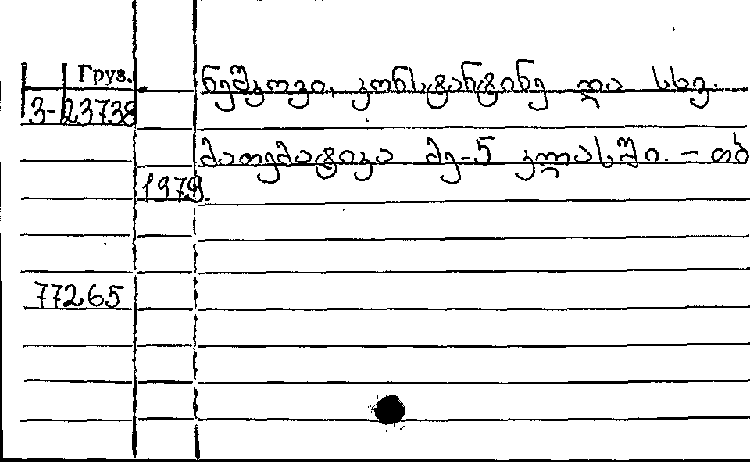 Груз.
ნეშკოვი, კონსტანტინე და სხვ.
3-23738
მათემატიკა მე-5 კლასში. - თბ
1979.
77265